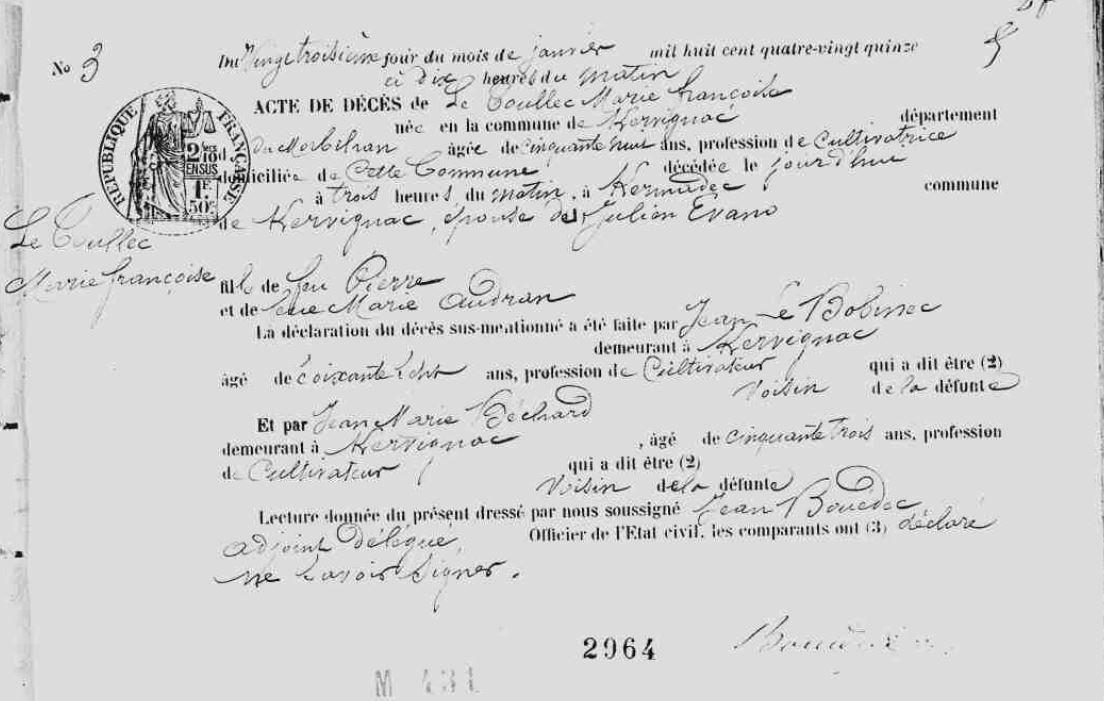 No 3
Du Vingt troisième jour du mois de janvier mil huit cent quatre-vingt quinze
à dix heures du matin
ACTE DE DÉCÈS de Le Coullec Marie françoise
née en la commune de Kervignac département
du Morbihan âgée de cinquante neuf ans, profession de Cultivatrice
domiciliée de Cette Commune décédée le jour d'hui
à trois heures du matin, à commune
de Kervignac, épouse de Julien Évano
Le Coullec
Marie françoise
fille de feu Pierre
et de feue Marie Audran
La déclaration du décès sus-mentionné a été faite par Jean Le
demeurant à Kervignac
âgé de soixante sept ans, profession de Cultivateur qui a dit être (2)
Voisin de la défunte
Et par Jean Marie Béchard
demeurant à Kervignac, âgé de cinquante trois ans, profession
de Cultivateur qui a dit être (2)
Voisin de la défunte
Lecture donnée du présent dressé par nous soussigné Jean Bouédec
adjoint délégué, Officier de l'Etat civil, les comparants ont (3) déclaré
ne savoir signer.
RÉPUBLIQUE FRANÇAISE
2964